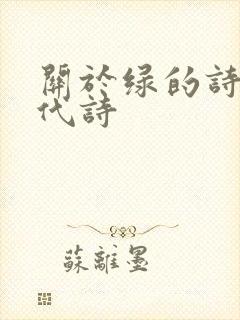 關於绿的詩
代詩
蘇離墨